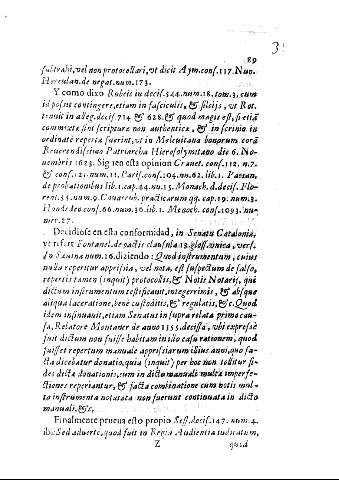 89
subtrahi, vel non protocollari, ut dicit Aym. cons. 117. Nun.
Herculan. de negat. num. 173.
Y como dixo Rubeis in decis. 324. num. 18. tom. 3. cum
id possit contingere, etiam in fasciculis, & filcijs, ut Rot.
tradit in alleg. decis. 714. & 628. & quod magis est, si etiã
commixta sint scripturæ non authenticæ, & in scrinio in
ordinatè reperta fuerint, ut in Melevitana bonorum coram
Reverendissimo Patriarcha Hierosolymitano die 6. No-
uembris 1623. Siguen esta opinion Crauet. cons. 112. n. 7.
& cons. 121. num. 11. Paris. cons. 104. nu. 62. lib. 1. Pavian.
de probationibus lib. 1. cap. 44. nu. 15. Monach. d. decis. Flo-
rent. 35. num. 9. Couarrub. practicarum qq. cap. 19. num. 3.
Hondedeo cons. 66. num. 36. lib. 1. Menoch. cons. 1093. nu-
mer. 27.
Decidiose en esta conformidad, in Senatu Cataloniæ,
ut refert Fontanel. de pactis clausula 13. gloss. vnica, vers.
In Sauina num. 16. diziendo: Quod instrumentum, cuius
nulla reperitur apprisia, vel nota, est suspectum de falso,
repertis tamen (inquit) protocollis, & Notis Notarij, quæ
dictum instrumentum testificant, integerrimis, & absque
aliqua laceratione, bene custoditis, & regulatis, &c. Quod
idem insinuauit, etiam Senatus in supra relata primo cau-
sa, Relatore Montaner de anno 1355. decissa, vbi expressè
fuit dictum non fuisse habitam in illo casu rationem, quod
fuisset repertum manuale apprisiarum illius anni, quo fa-
cta dicebatur donatio, quia (inquit) per hoc non tollitur fi-
des dicta donationis, cum in dicto manuali multa imperfe-
ctiones reperiantur, & facta combinatione cum notis mul-
ta instrumenta notata non fuerunt continuata in dicto
manuali, &c.
Finalmente prueua esto propio Sess. decis. 147. num. 4.
ibi: Sed aduerte, quod fuit in Regia Audientia iudicatum,
Z quod